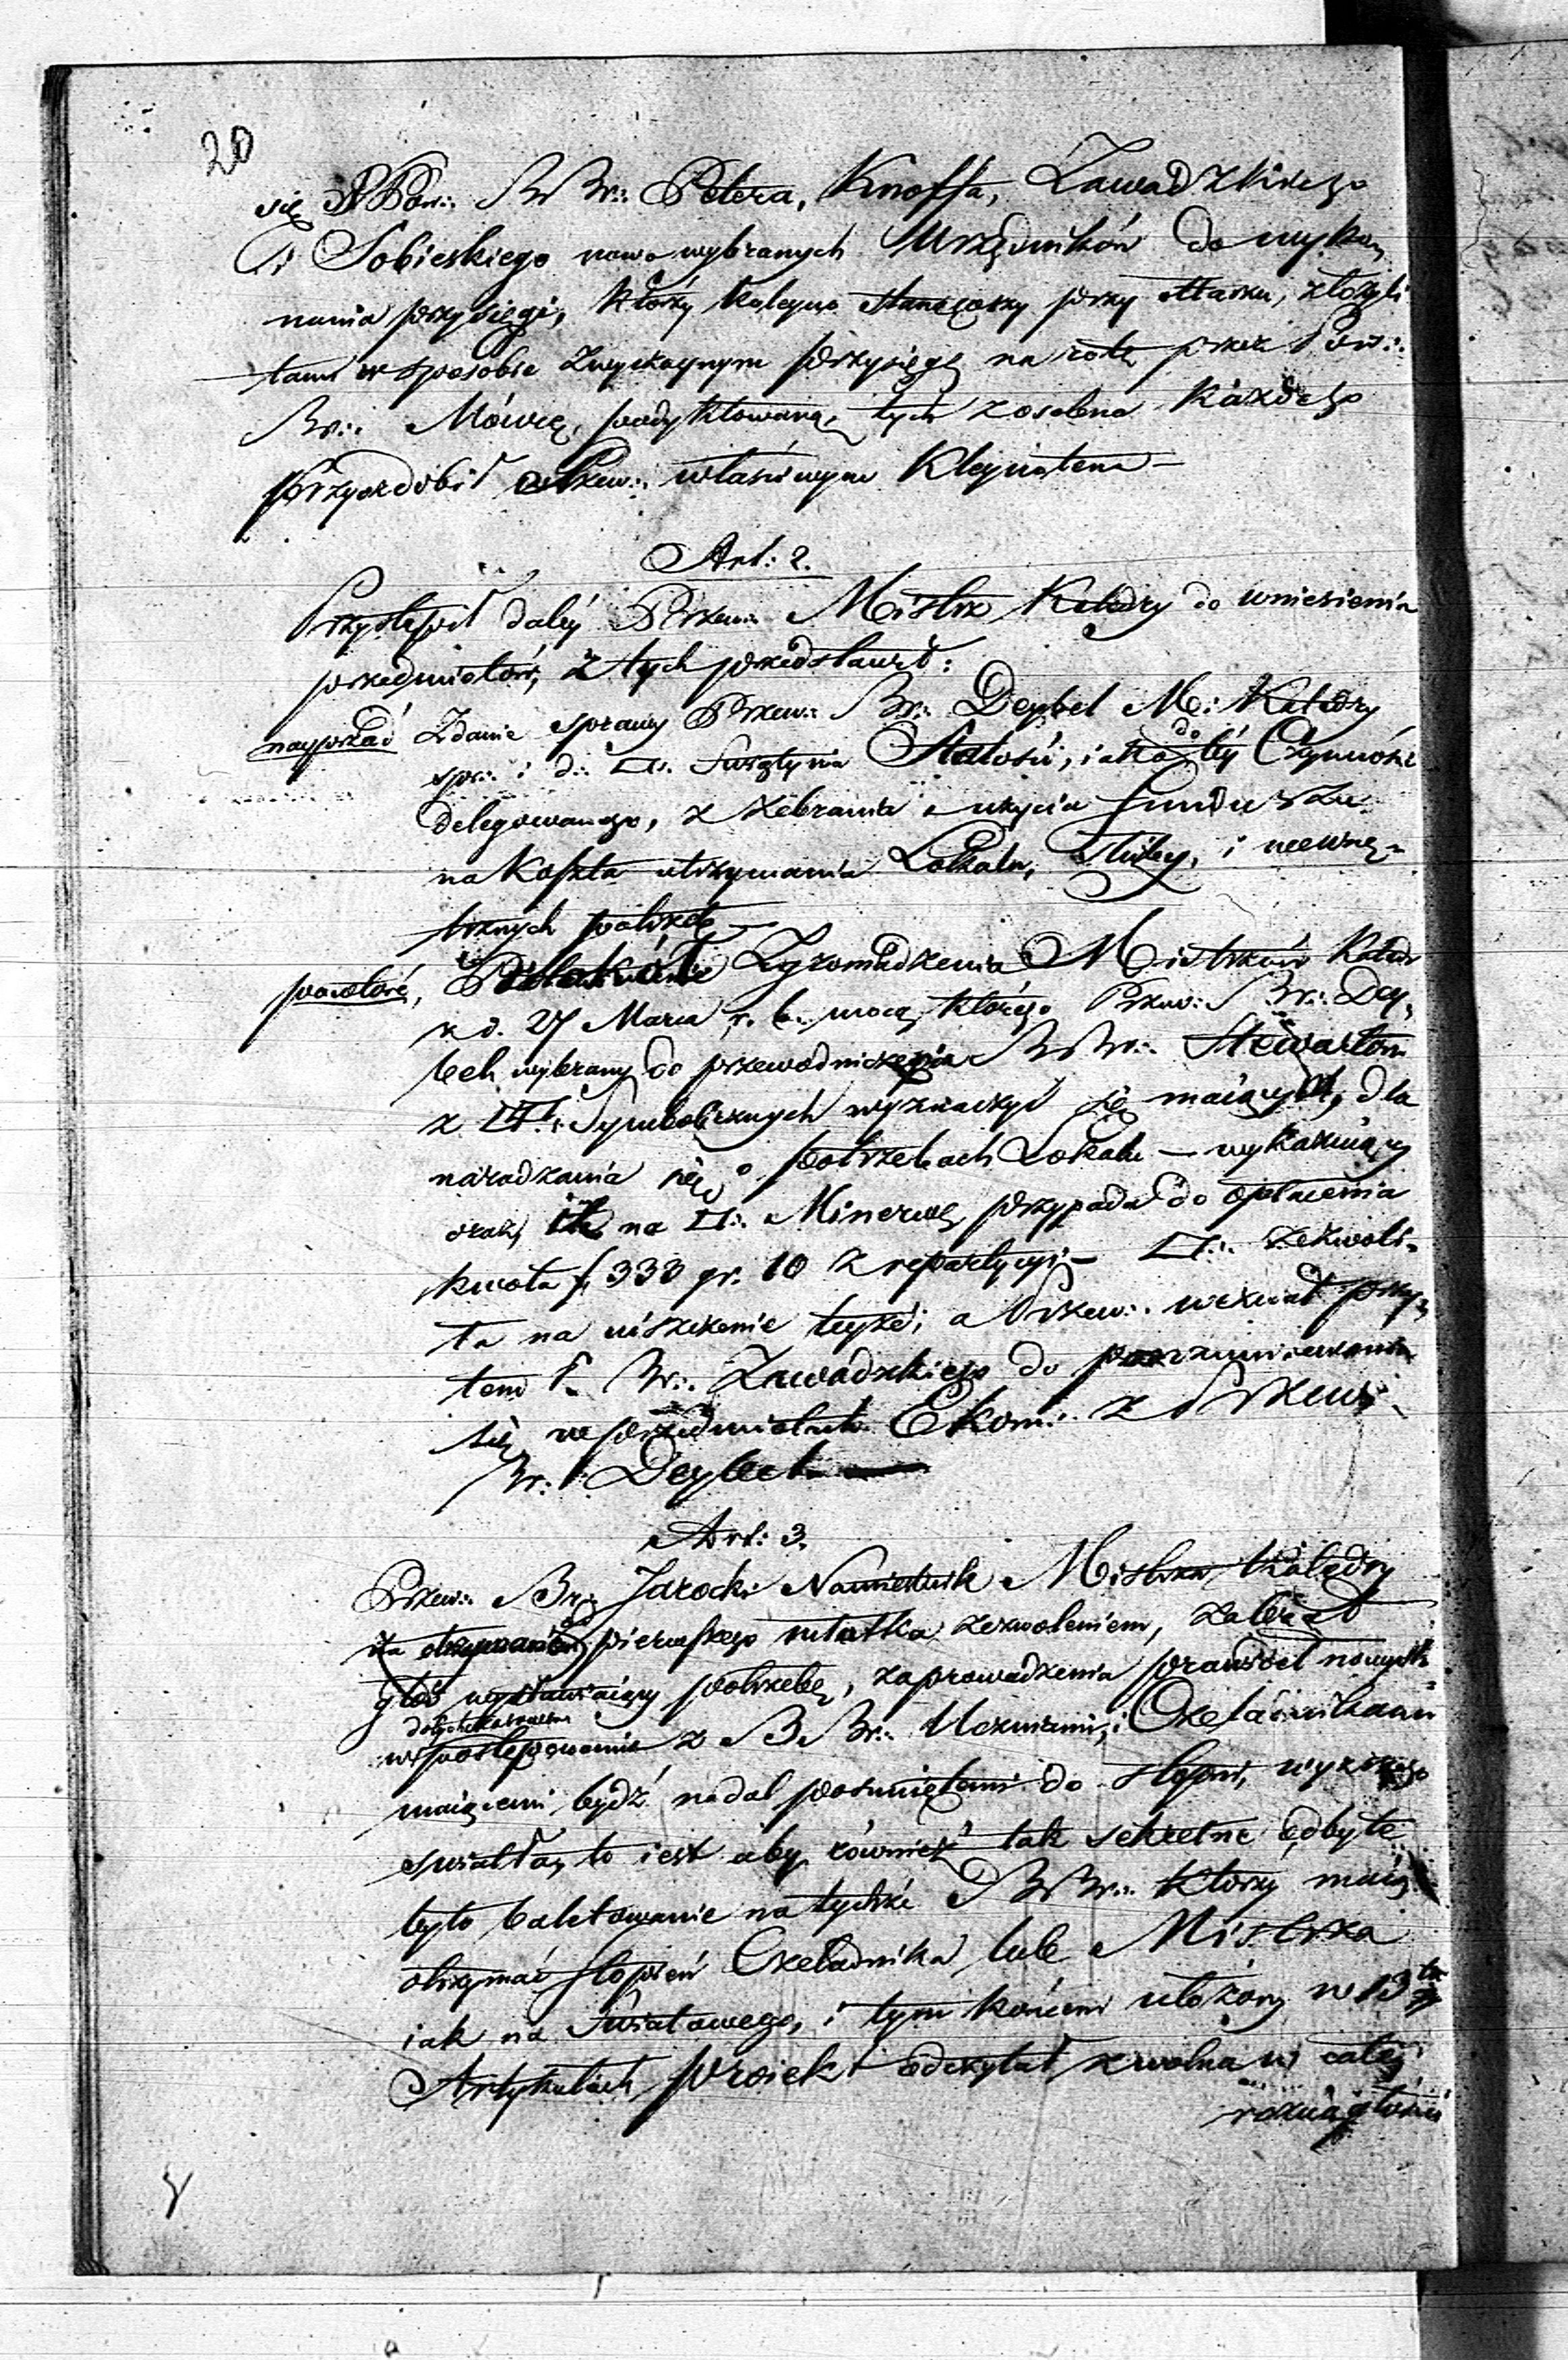 20
się PPow∴ BBr∴ Petera, Knoffa, Zawadzkiego
i Sobieskiego nowo wybranych Urzędników do wyko„
nania przysięgi, którzy koleyno stanąwszy przy ołtarzu, złożyli
tam w sposobie zwyczaynym przysięgę na rotę przez Pow∴
Br∴ Mówcę, podyktowaną, tych zosobna każdego
przyozdobił Przew∴ właściwym Kleynotem —
Art: 2.
Przystąpił daléy Przew∴ Mistrz Katedry do wniesienia
przedmiotów, z tych przedstawił:
nayprzód Zdanie sprawy Przew∴ Br∴ Deybel M: Katedry
spr∴ i d∴ □∴ Świątynia Stałości, iako do téy Czynności
delegowanego, z zebrania i użycia funduszu
na koszta utrzymania Lokalu, Służby, i wewnę„
trznych potrzeb —
powtóre, Zgromadzenia Mistrzów Katedr
z d. 27 Marca r. b. mocą którego Przew∴ Br∴ Dey„
bel wybrany do przewodniczenia BBr∴ Stewartom
z □□∴ Symbolicznych wyznaczyć się maiącym, dla
naradzania się o potrzebach Lokalu — wykazuiący
oraz, iż na □∴ Minerwę, przypada do opłacenia
kwota f 333 gr. 10 z repartycyi — □∴ zezwoli„
ła na uiszczenie teyże; a Przew∴ wezwał przy„
tem P. Br∴ Zawadzkiego do porozumiewania
się w przedmiotach Ekon∴ z Przew∴
Br∴ Deybel —
Art: 3.
Przew∴ Br∴ Jarocki Namiestnik Mistrza Katedry
za otrzymaném pierwszego młotka zezwoleniem, zabrał
głos wystawiaiący potrzebę, zaprowadzenia prawideł nowych
dotychczasowem
w postępowaniu z BBr∴ Uczniami, i Czeladnikami
maiącemi bydź nadal posuniętemi do stopni, wyższego
światła, to iest aby również tak sekretne odbyte
było baletowanie na tychże BBr∴ którzy maią
otrzymać stopień Czeladnika lub Mistrza
iak na Światowego, i tym końcem ułożony w 13tu
Artykułach proiekt odczytał zwolna w całéy
rozciągłości